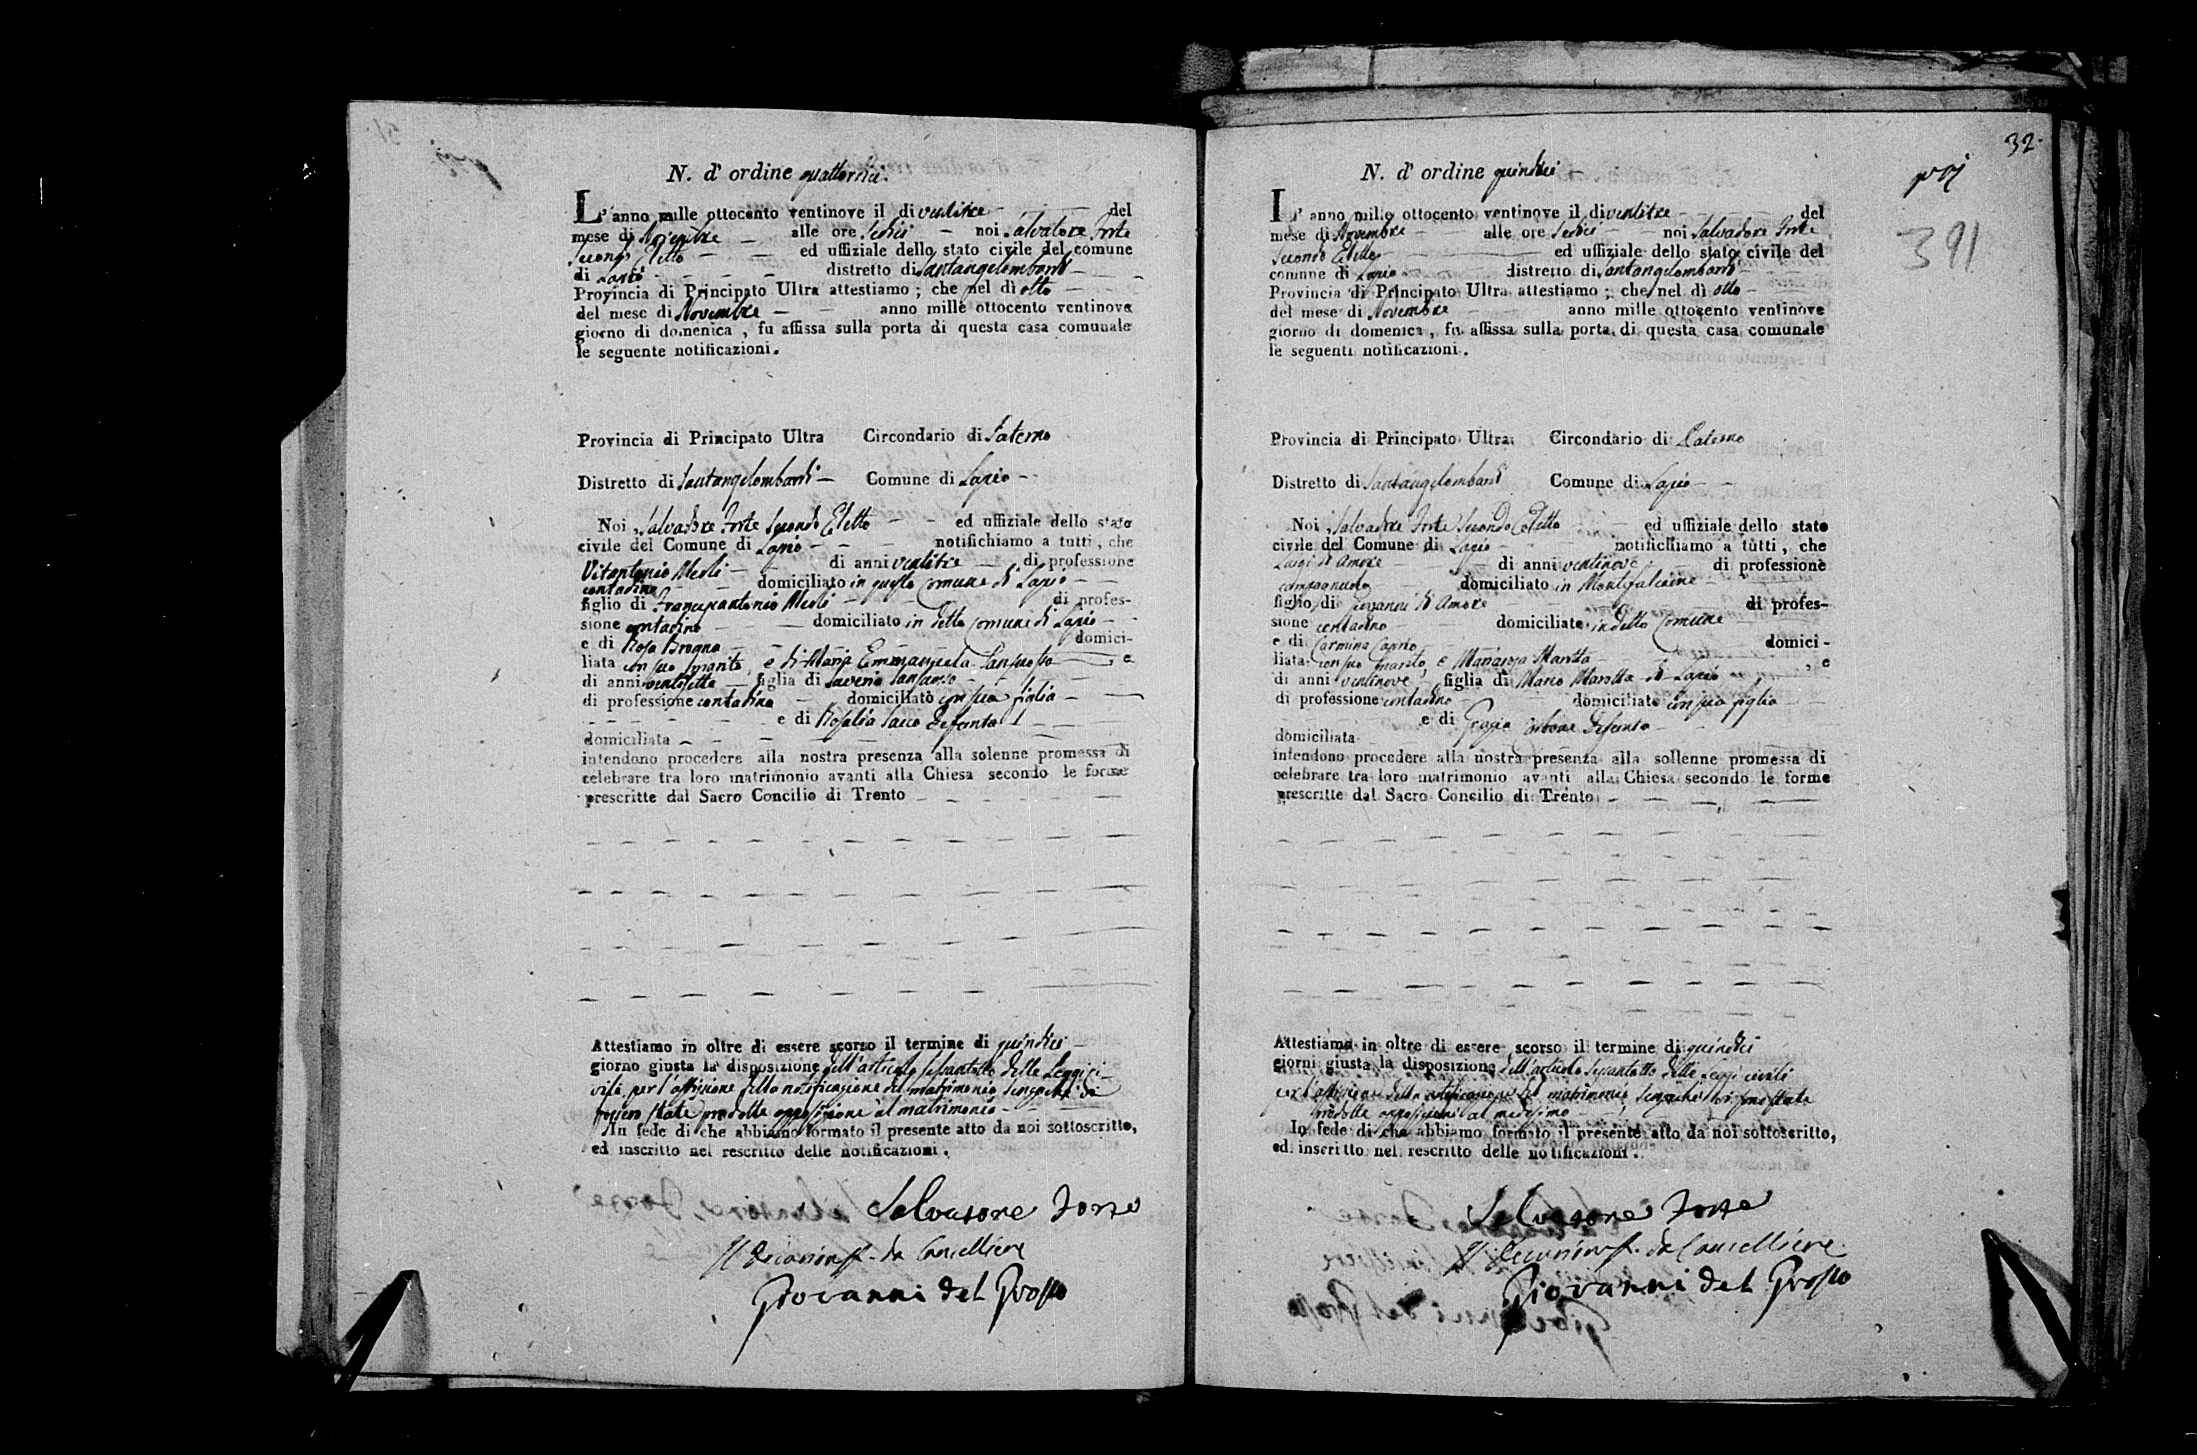 N. d' ordine quattordici.
L' anno mille ottocento ventinove il di ventitre del
mese di Novembre alle ore sedici noi Salvatore Forte
Secondo Eletto ed uffiziale dello stato civile del comune
di Lapio distretto di Santangelombardi
Provincia di Principato Ultra attestiamo ; che nel dì otto
del mese di Novembre anno mille ottocento ventinove
giorno di domenica , fu affissa sulla porta di questa casa comunale
le seguente notificazioni.
Provincia di Principato Ultra Circondario di Paterno
Distretto di Santangelombardi Comune di Lapio
Noi Salvadore Forte Secondo Eletto ed uffiziale dello stato
civile del Comune di Lapio notifichiamo a tutti , che
Vitantonio Meoli di anni ventitre di professione
contadino domiciliato in questo Comune di Lapio
figlio di Francescantonio Meoli di profes-
sione contadino domiciliato in detto Comune di Lapio
e di Rosa Brogna domici-
liata con suo marito, e di Maria Emmanuela Sansosso , e
di anni ventisette figlia di Saverio Sansosso
di professione contadino domiciliato con sua figlia
e di Rosalia Sacco defonta
domiciliata
intendono procedere alla nostra presenza alla solenne promessa di
celebrare tra loro matrimonio avanti alla Chiesa secondo le forme
prescritte dal Sacro Concilio di Trento
Attestiamo in oltre di essere scorso il termine di quindici
giorno giusta la disposizione dell'articolo sessantotto delle Leggi ci-
vili per l'affissione della notificazione del matrimonio senza che vi
fossero state prodotte opposizione al matrimonio
In fede di che abbiamo formato il presente atto da noi sottoscritto,
ed inscritto nel rescritto delle notificazioni .
Salvatore Forte
Il Decurione ff. da Cancelliere
Giovanni del Grosso
32.
391
N. d' ordine quindici
L' anno mille ottocento ventinove il di ventitre del
mese di Novembre alle ore sedici noi Salvadore Forte
Secondo Eletto ed uffiziale dello stato civile del
comune di Lapio distretto di Santangelombardi
Provincia di Principato Ultra attestiamo ; che nel dì otto
del mese di Novembre anno mille ottocento ventinove
giorno di domenica , fu affissa sulla porta di questa casa comunale
le seguenti notificazioni .
Provincia di Principato Ultra Circondario di Paterno
Distretto di Santangelombardi Comune di Lapio
Noi Salvadore Forte Secondo Eletto ed uffiziale dello stato
civile del Comune di Lapio notifichiamo a tutti , che
Luigi di Amore di anni ventinove di professione
campagnuolo domiciliato in Montefalcione
figlio di Giovanni di Amore di profes-
sione contadino domiciliato in detto Comune
e di Carmina domici-
liata con suo marito, e Mariarosa Marotta , e
di anni ventinove figlia di Marco Marotta di Lapio
di professione contadino domiciliato con sua figlia
e di Grazia defunta
domiciliata
intendono procedere alla nostra presenza alla sollenne promessa di
celebrare tra loro matrimonio avanti alla Chiesa secondo le forme
prescritte dal Sacro Concilio di Trento
Attestiamo in oltre di essere scorso il termine di quindici
giorni giusta la disposizione dell'articolo sessantotto delle Leggi civili
per l'affissione della notificazione del matrimonio senza che vi fossero state
prodotte opposizioni al medesimo
In fede di che abbiamo formato il presente atto da noi sottoscritto,
ed inscritto nel rescritto delle notificazioni .
Salvatore Forte
Il Decurione ff. da Cancelliere
Giovanni del Grosso